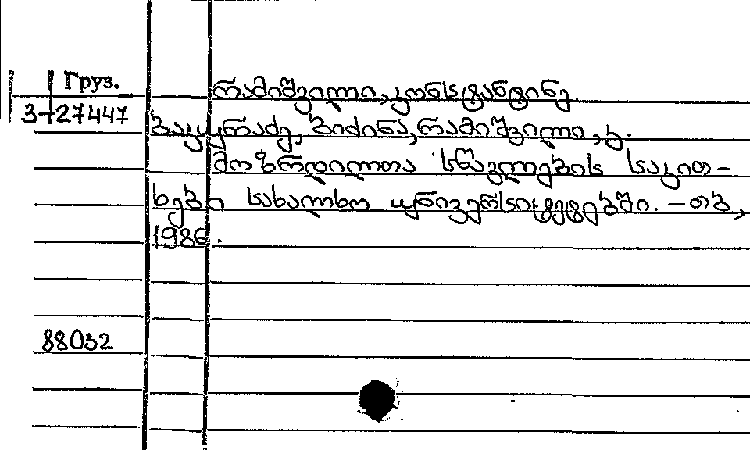 Груз.
რამიშვილი, კონსტანტინე
3-27447
ბაკურაძე, ბიძინა, რამიშვილი, კ.
მოზრდილთა სწავლების საკით-
ხები სახალხო უნივერსიტეტებში. - თბ.,
1986.
88032